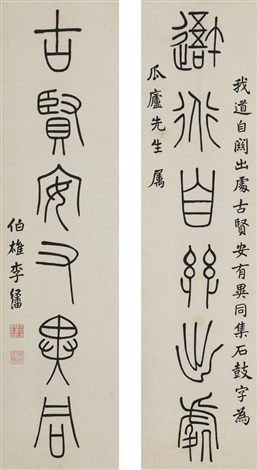 我道自闗出處古賢安有異同集石鼓字為
我道自關出處
瓜廬先生屬
古賢安又異同
伯雄李繙